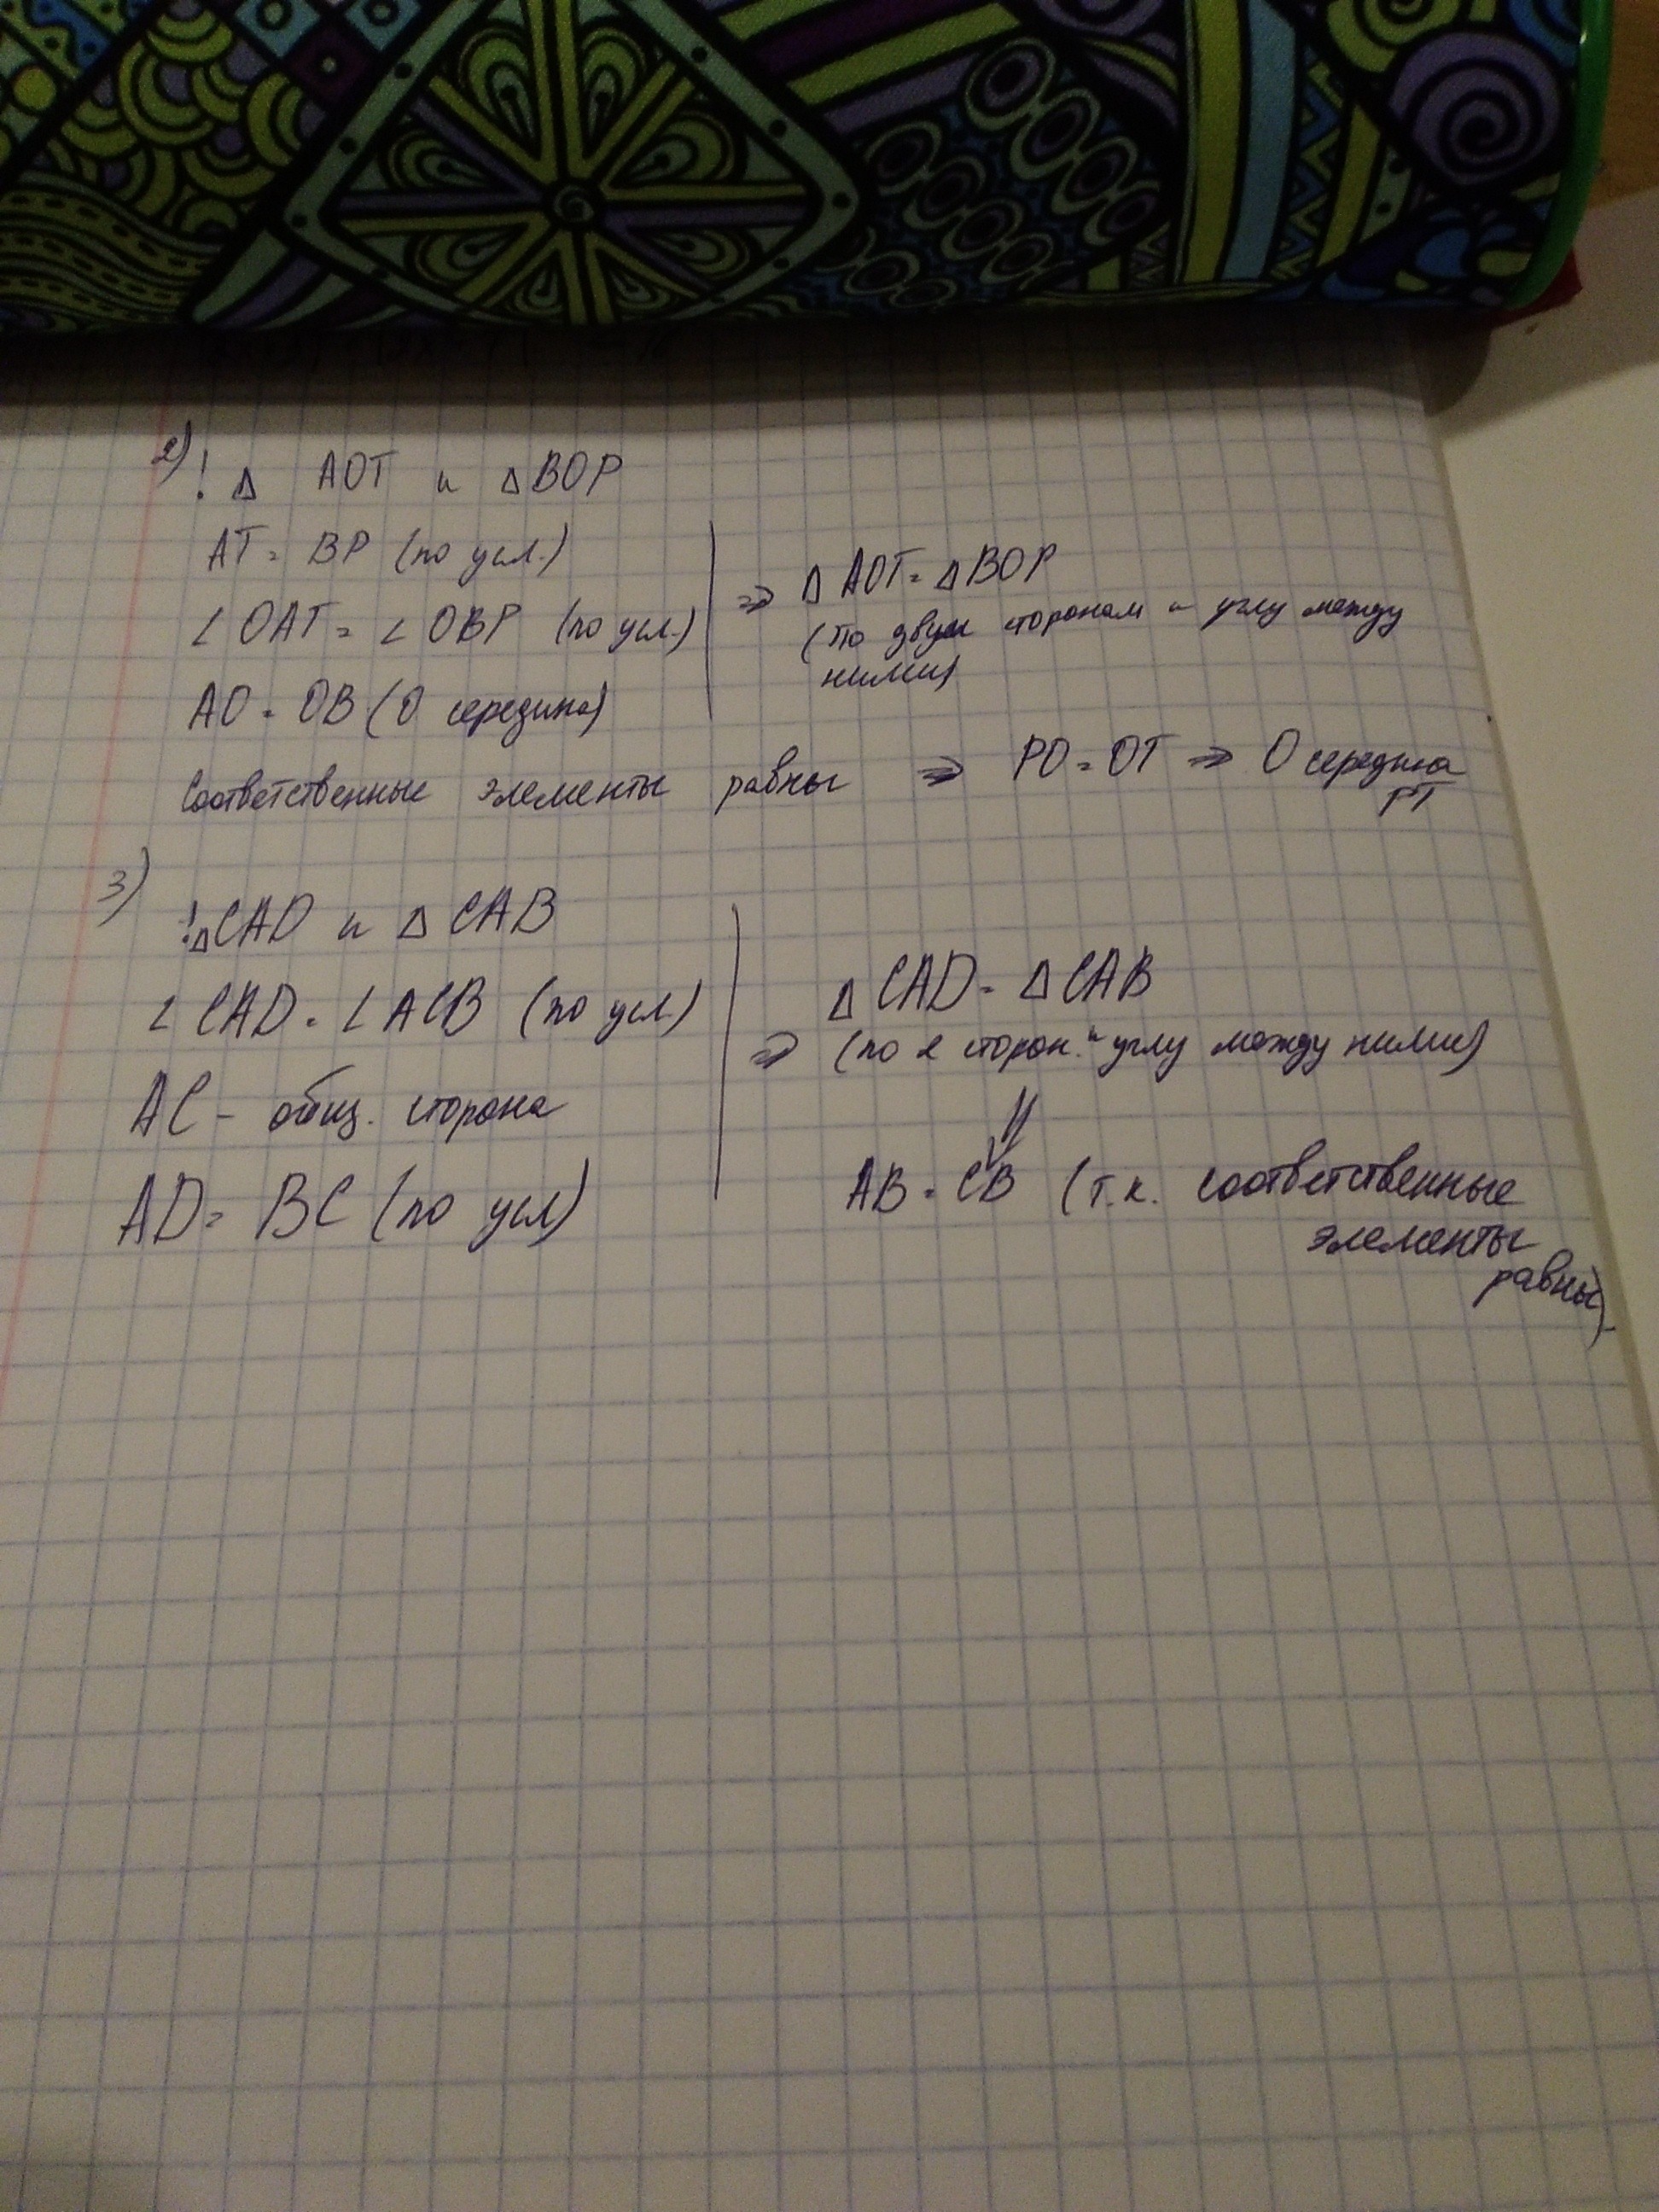 2) ! Δ AOT и Δ BOP
AT = BP (по усл.)
∠ OAT = ∠ OBP (по усл.)
AO = OB (O середина)
⇒ Δ AOT = Δ BOP
(по двум сторонам и углу между
ними)
Соответственные элементы равны ⇒ PO = OT ⇒ O середина
PT
3)
! Δ CAD и Δ CAB
∠ CAD = ∠ ACB (по усл.)
AC - общ. сторона
AD = BC (по усл)
Δ CAD = Δ CAB
⇒ (по 2 сторон. и углу между ними)
⇓
AB = CB (т.к. соответственные
элементы
равны)